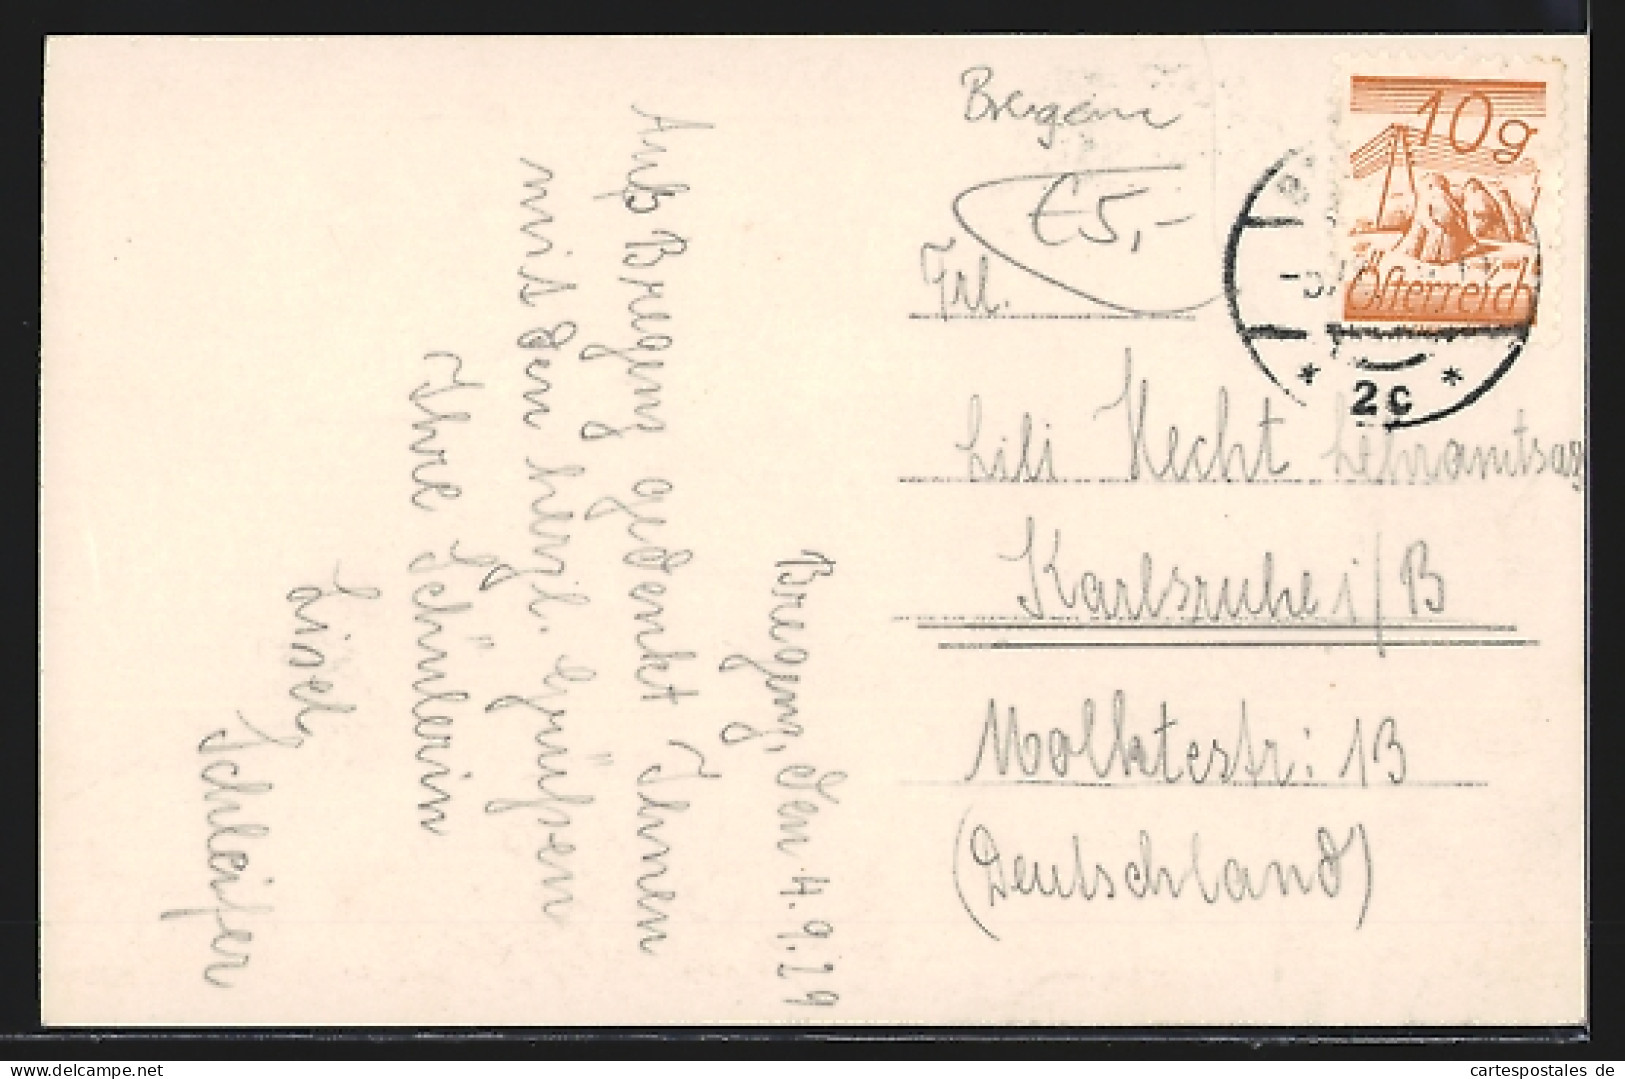 Bregenz, den 4.9.29
Aus Bregenz gedenkt Ihnen
mit den herzl. Grüssen
Ihre Schülerin
Liesel
Schleifer
Bregenz
€5,-
10g
Österreich
2c
Frl.
Lili Hecht Lehramtsass
Karlsruhe i/B
Moltkestr: 13
(Deutschland)
www.delcampe.net
cartespostales de